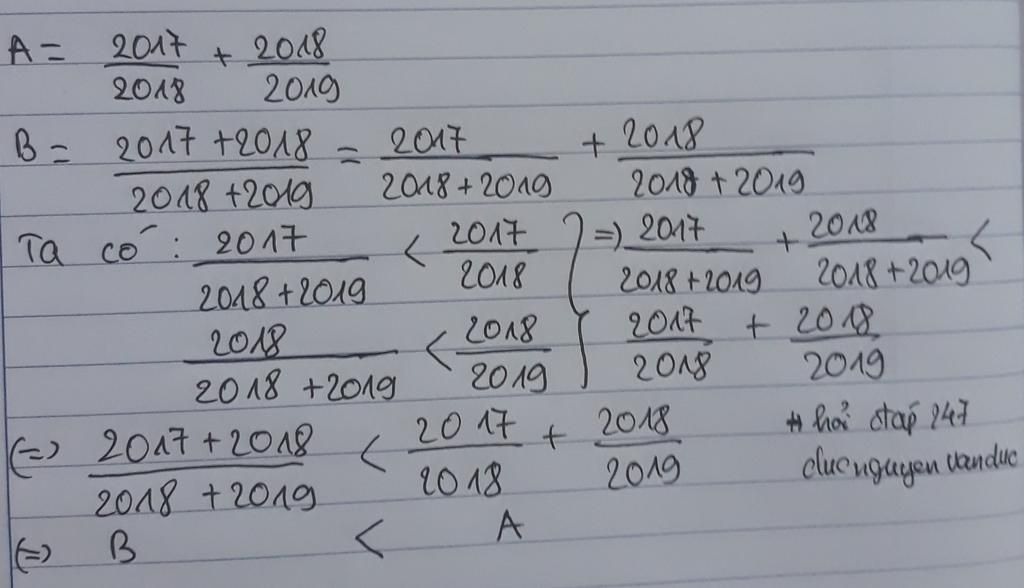 A = 2017/2018 + 2018/2019
B = (2017 + 2018)/(2018 + 2019) = 2017/(2018 + 2019) + 2018/(2018 + 2019)
Ta có : 2017/(2018 + 2019) < 2017/2018 } => 2017/(2018 + 2019) + 2018/(2018 + 2019) <
2018/(2018 + 2019) < 2018/2019 } 2017/2018 + 2018/2019
(=) (2017 + 2018)/(2018 + 2019) < 2017/2018 + 2018/2019
# hỏi đáp 247
ducnguyenvanduc
(=) B < A